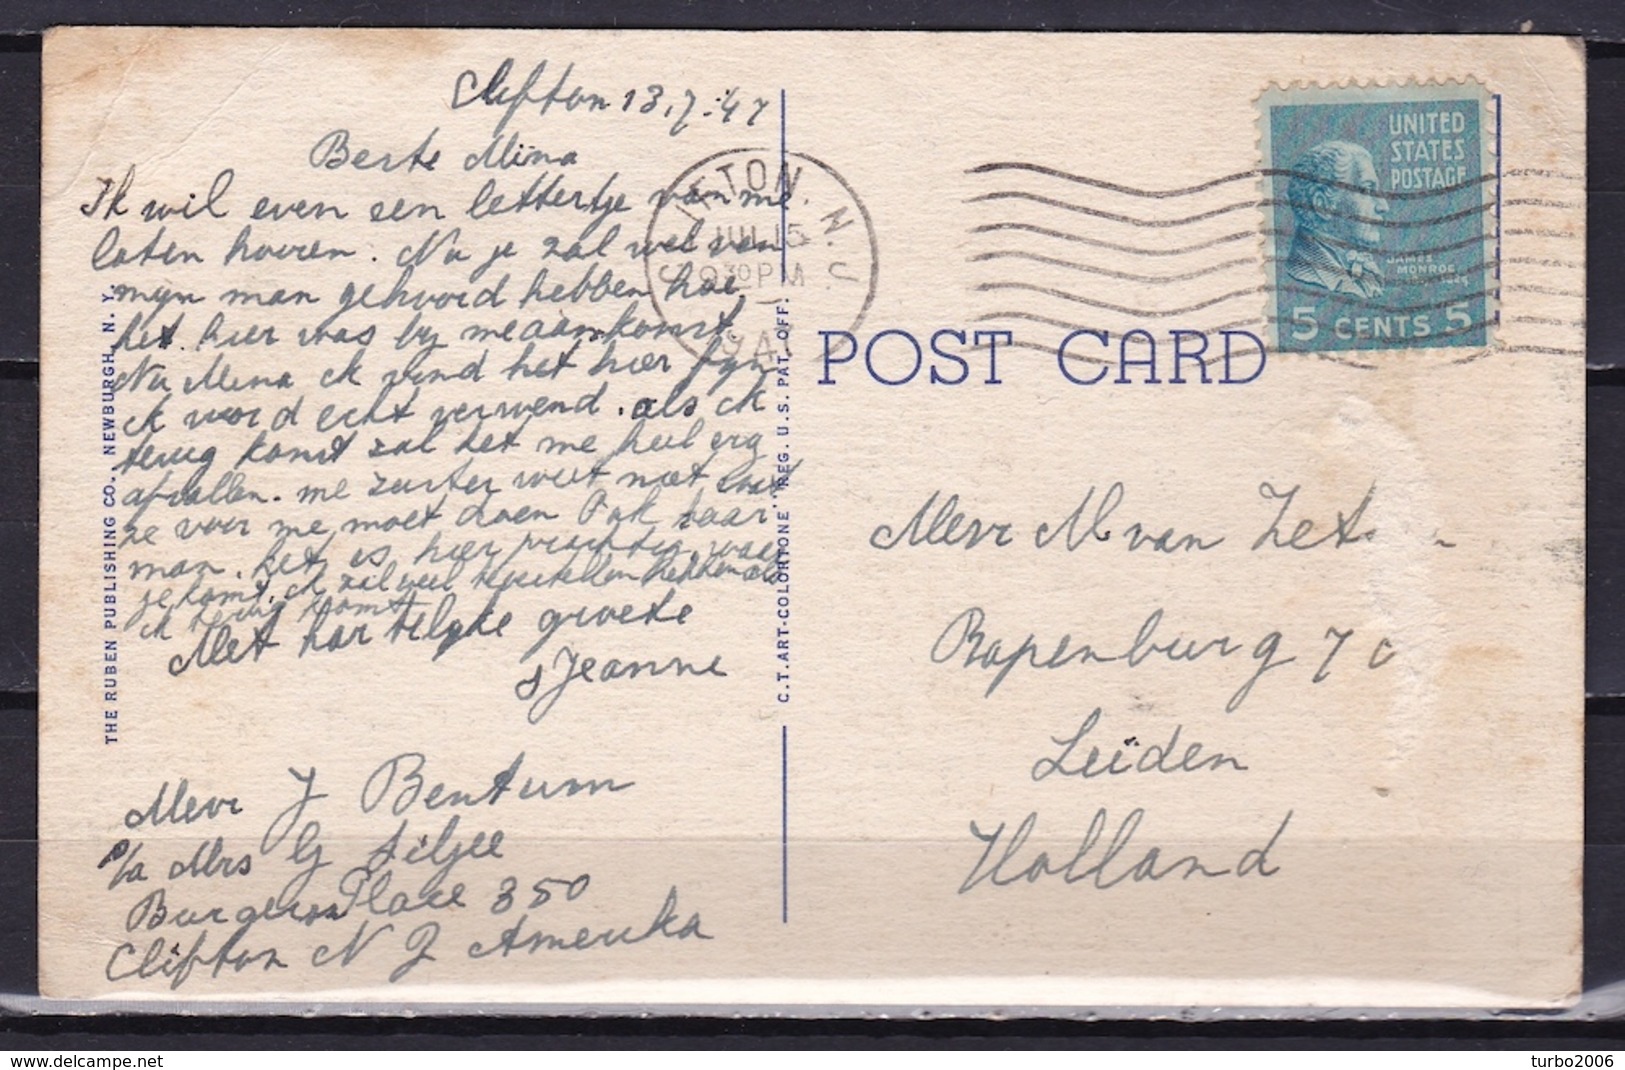 Clifton 13.7.47
Beste Mina
Ik wil even een lettertje van me
laten hooren. Nu je zal wel van
myn man gehoord hebben hoe
het hier was by me aankomst
Nu Mina ik vind het hier fyn
ik word echt verwend. als ik
terug komt zal het me heel erg
afvallen. me zuster weet niet wat
ze voor me moet doen Ook haar
man. het is hier prachtig waar
je komt. ik zal veel te vertellen hebben als
ik terug komt
Met hartelyke groete
Jeanne
Mevr J Bentum
p/a Mrs G
Burgess Place 350
Clifton N J Amerika
THE RUBEN PUBLISHING CO., NEWBURGH, N. Y.
C.T. ART-COLORTONE" REG. U.S. PAT. OFF.
CLIFTON N.J.
JUL 15
9 30 PM
194
POST CARD
UNITED
STATES
POSTAGE
JAMES
MONROE
5 CENTS 5
Mevr M van Zet
Papenburg 7
Leiden
Holland
turbo2006